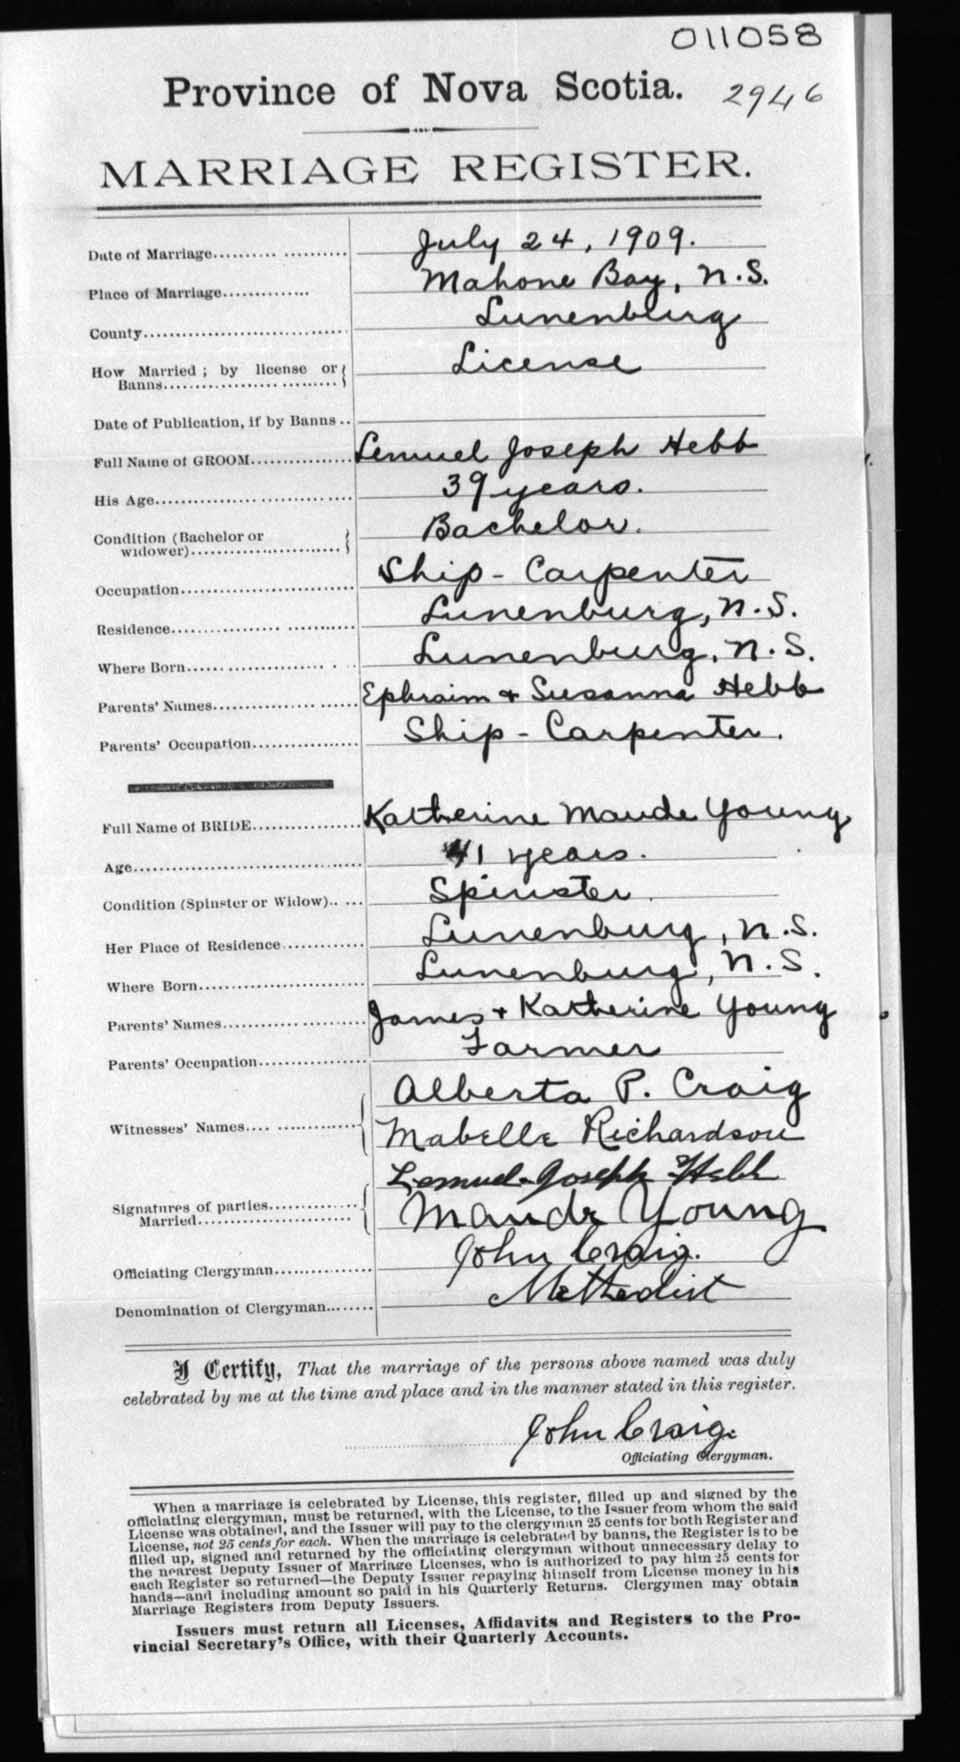 011058
Province of Nova Scotia. 2946
MARRIAGE REGISTER.
Date of Marriage.......... July 24, 1909.
Place of Marriage.............. Mahone Bay, N.S.
County............................... Lunenburg
How Married ; by license or
Banns............................... License
Date of Publication, if by Banns ..
Full Name of GROOM............... Lemuel Joseph Hebb
His Age.............................. 39 years.
Condition (Bachelor or
widower).......................... Bachelor.
Occupation.......................... Ship - Carpenter
Residence............................ Lunenburg, N.S.
Where Born...................... Lunenburg, N.S.
Parents' Names..................... Ephraim & Susanna Hebb
Parents' Occupation................ Ship - Carpenter.
Full Name of BRIDE................ Katherine Maude Young
Age................................... 41 years.
Condition (Spinster or Widow)..... Spinster
Her Place of Residence............ Lunenburg, N.S.
Where Born......................... Lunenburg, N.S.
Parents' Names..................... James + Katherine Young
Parents' Occupation............... Farmer
Witnesses' Names.... ............. Alberta P. Craig
Mabelle Richardson
Signatures of parties............... Lemuel Joseph Hebb
Married........................ Maude Young
Officiating Clergyman............... John Craig.
Denomination of Clergyman....... Methodist
I Certify, That the marriage of the persons above named was duly
celebrated by me at the time and place and in the manner stated in this register.
John Craig.
Officiating Clergyman.
When a marriage is celebrated by License, this register, filled up and signed by the
officiating clergyman, must be returned, with the License, to the Issuer from whom the said
License was obtained, and the Issuer will pay to the clergyman 25 cents for both Register and
License, not 25 cents for each. When the marriage is celebrated by banns, the Register is to be
filled up, signed and returned by the officiating clergyman without unnecessary delay to
the nearest Deputy Issuer of Marriage Licenses, who is authorized to pay him 25 cents for
each Register so returned—the Deputy Issuer repaying himself from License money in his
hands—and including amount so paid in his Quarterly Returns. Clergymen may obtain
Marriage Registers from Deputy Issuers.
Issuers must return all Licenses, Affidavits and Registers to the Pro-
vincial Secretary's Office, with their Quarterly Accounts.